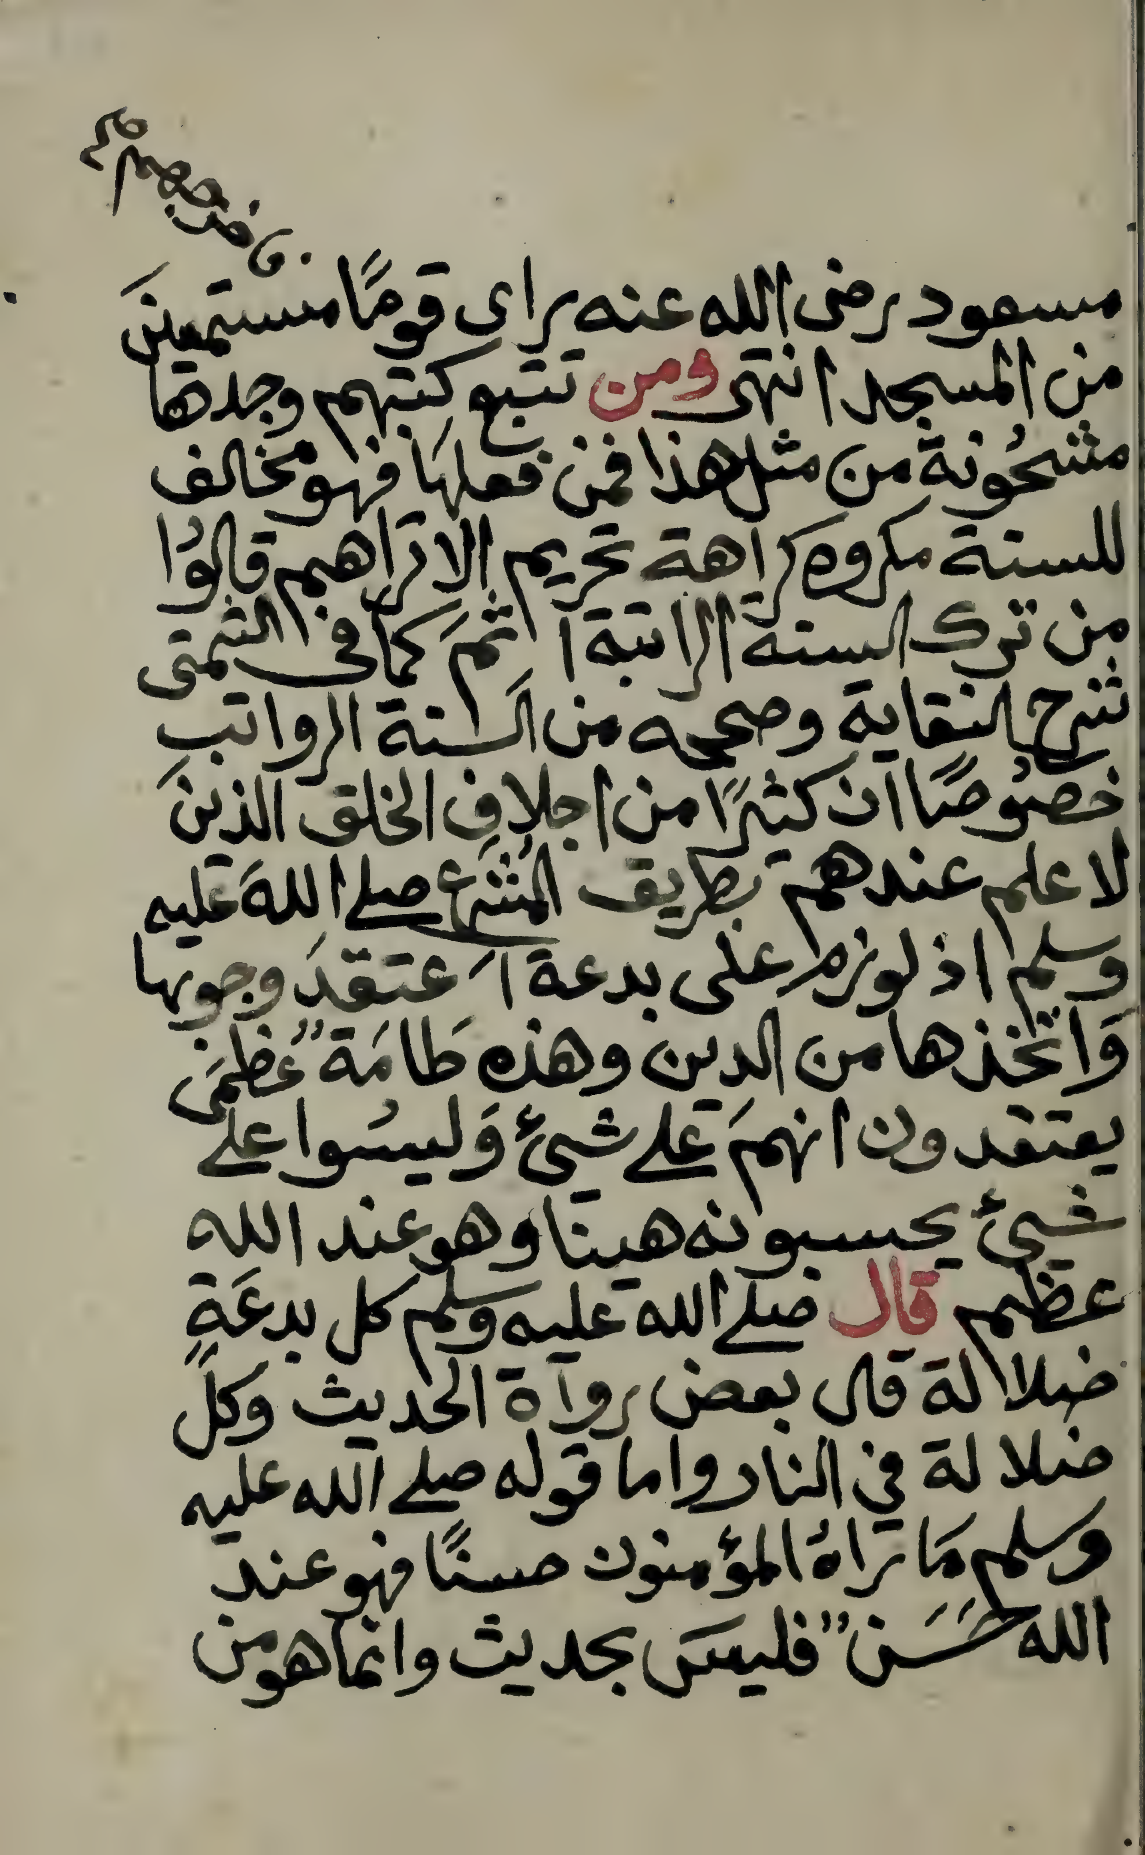 فاخرجهم صح
مسعود رضى الله عنه راى قومًا مستمعينَ
من المسجد انتهى ومن تتبع كتبهم وجدها
مشحُونة من مثل هذا فمن فعلهَا فهو مخالف
للسنة مكروه كراهة تحريم الا تراهم قالوُا
من ترك السنة الراتبة اثمَ كمَا فى الشمتى
شرح النقاية وصححه من السنة الرواتبِ
خصُوصًا ان كثيرًا من اجلافِ الخلق الذينَ
لا علم عندهم بطريق المُشَرع صلى اللهَ عليه
وسلم اذ لو لزم على بدعة اعتقدَ وجوبها
وَاتخذها من الدين وهذه طامَة عُظمَى
يعتقدون انهمَ على شيئ وَليسُوا على
شيئ يحسبونه هينا وهو عند الله
عظيم قال صلى الله عليه وسلم كل بدعَةٍ
ضلالة قال بعض رواة الحديث وكلّ
ضلالة في النار واما قوله صلى الله عليه
وسلم مَا تراهُ المؤمنون حسنًا فهو عند
الله حَسَن فليسَ بحديث وانما هو من